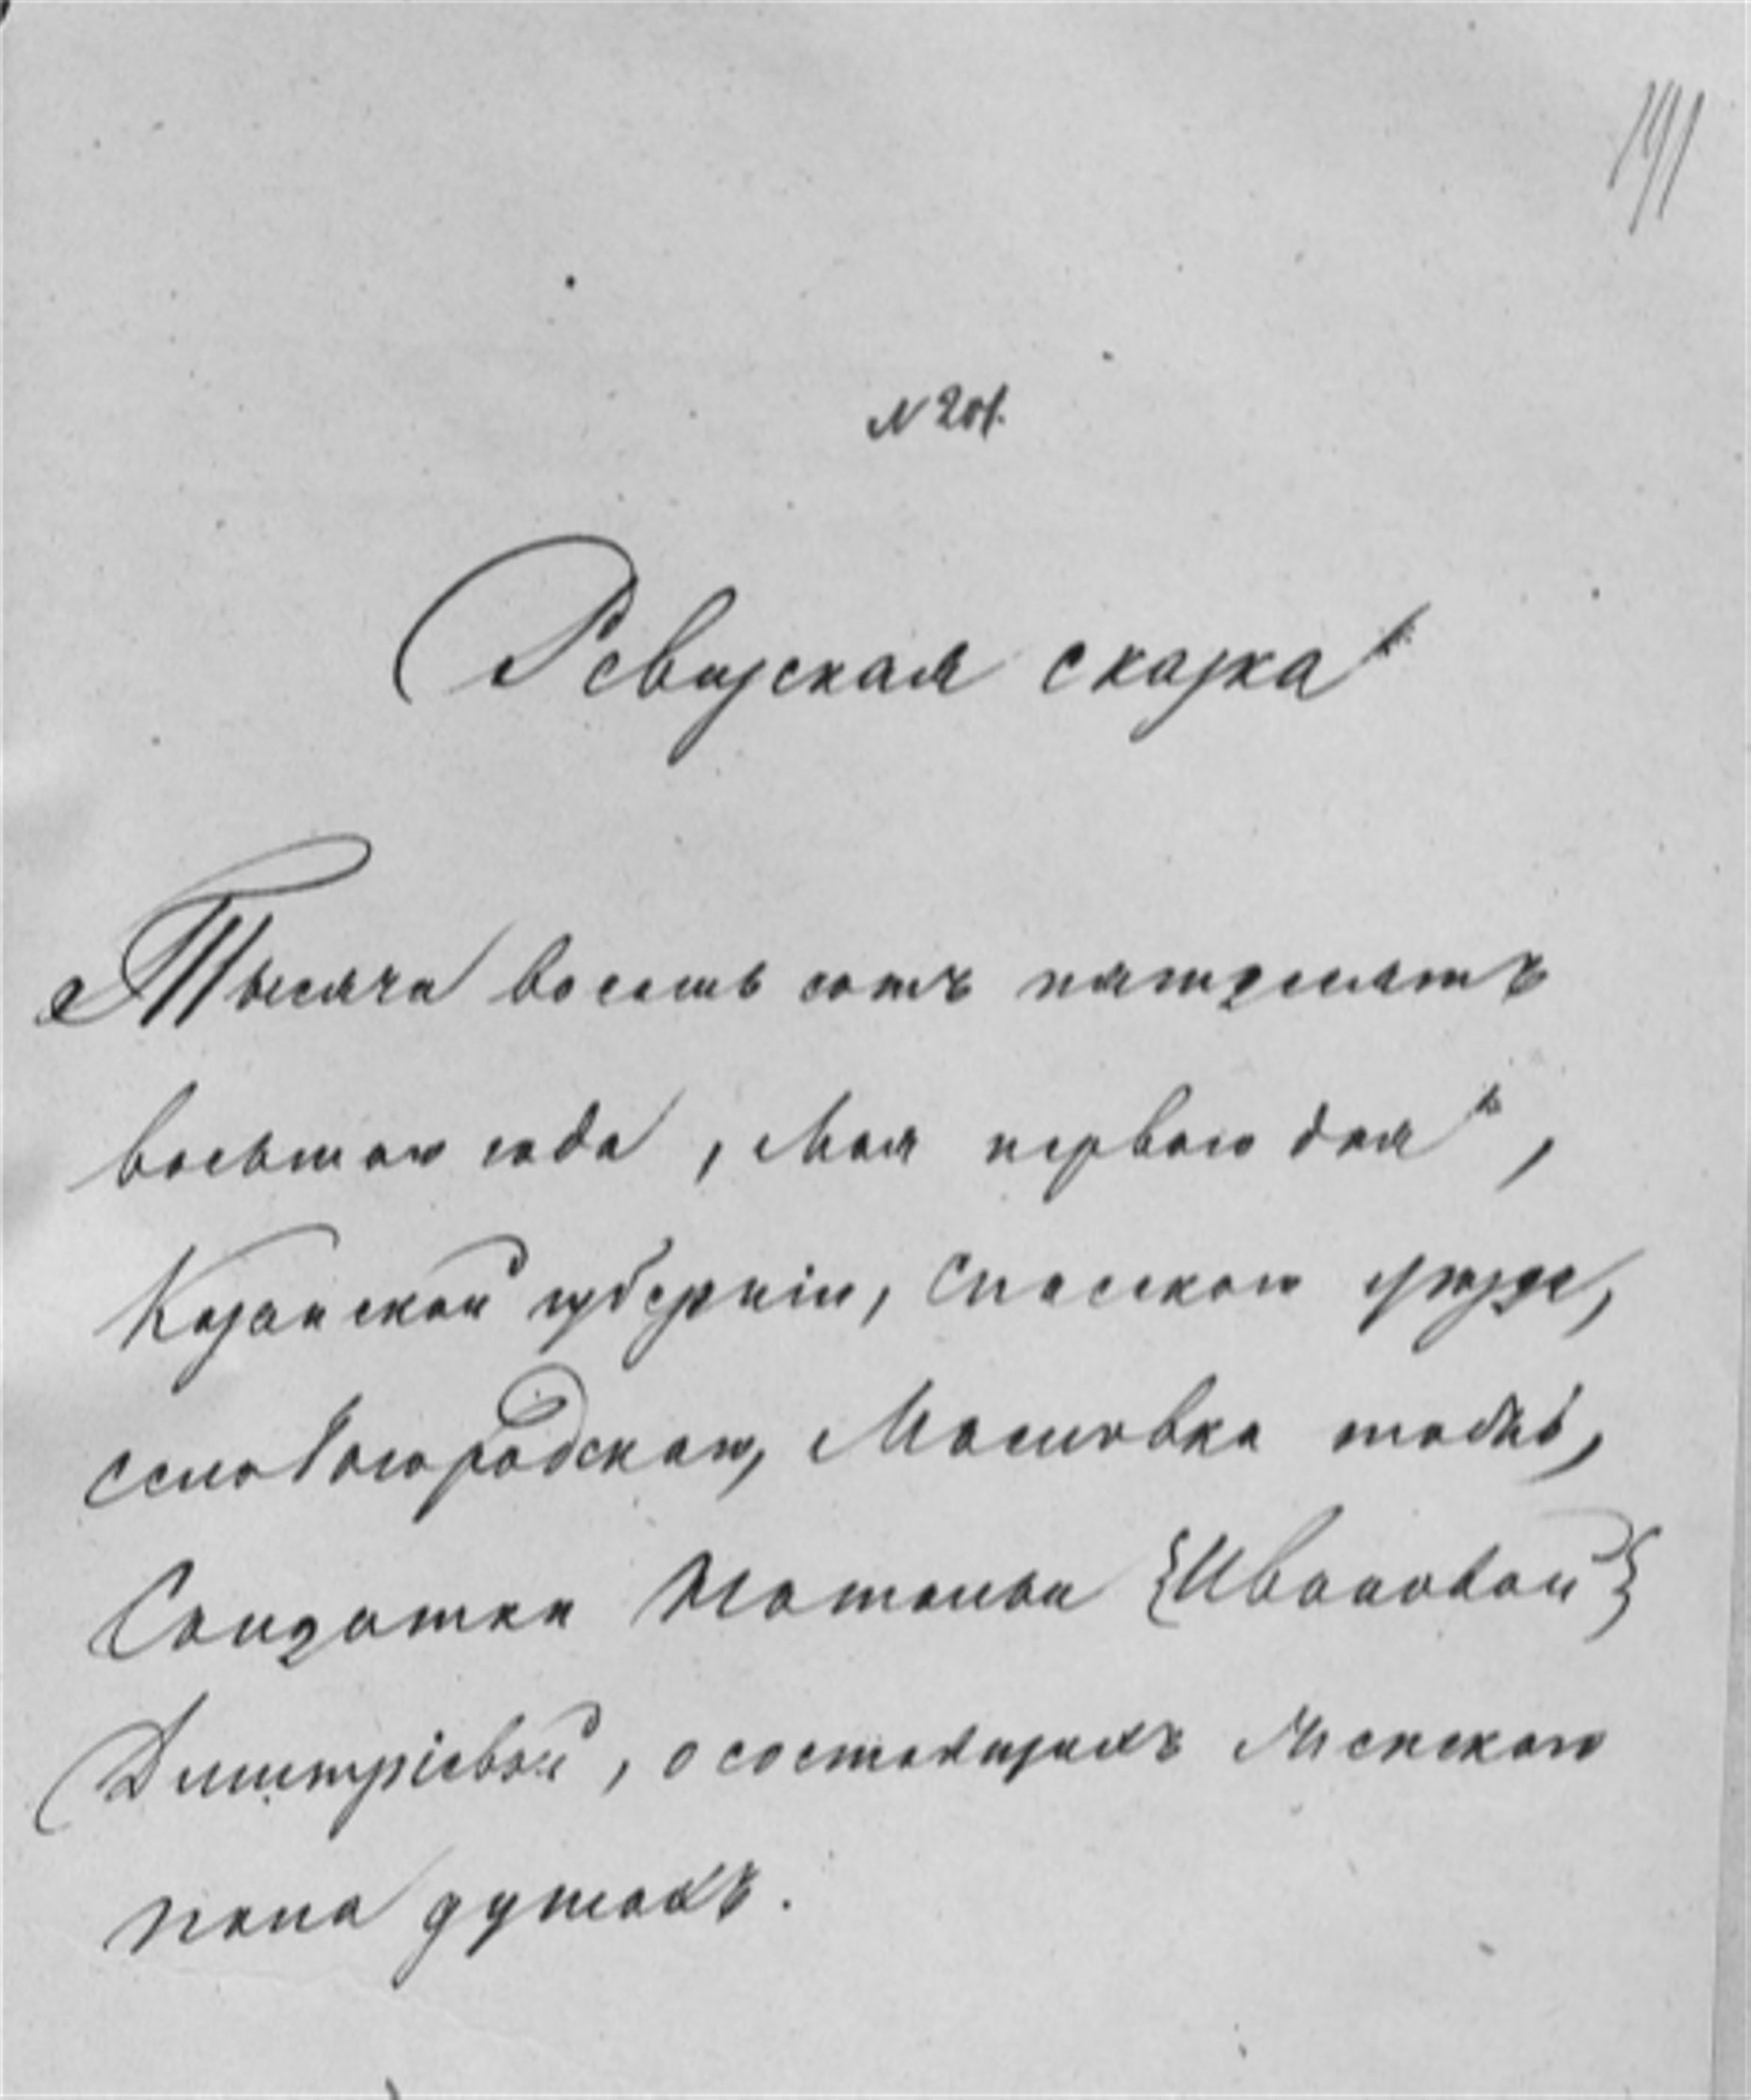 191
N 201.
Ревизская сказка
Тысяча восемь сотъ пятдесятъ
восьмаго года, Мая перваго дня,
Казанской губерніи, Спасскаго уѣзда,
село Богородскаго, тожъ,
Солдатки Натальи {Ивановой}
Димитріевой, о состоящихъ Женскаго
пола душахъ.